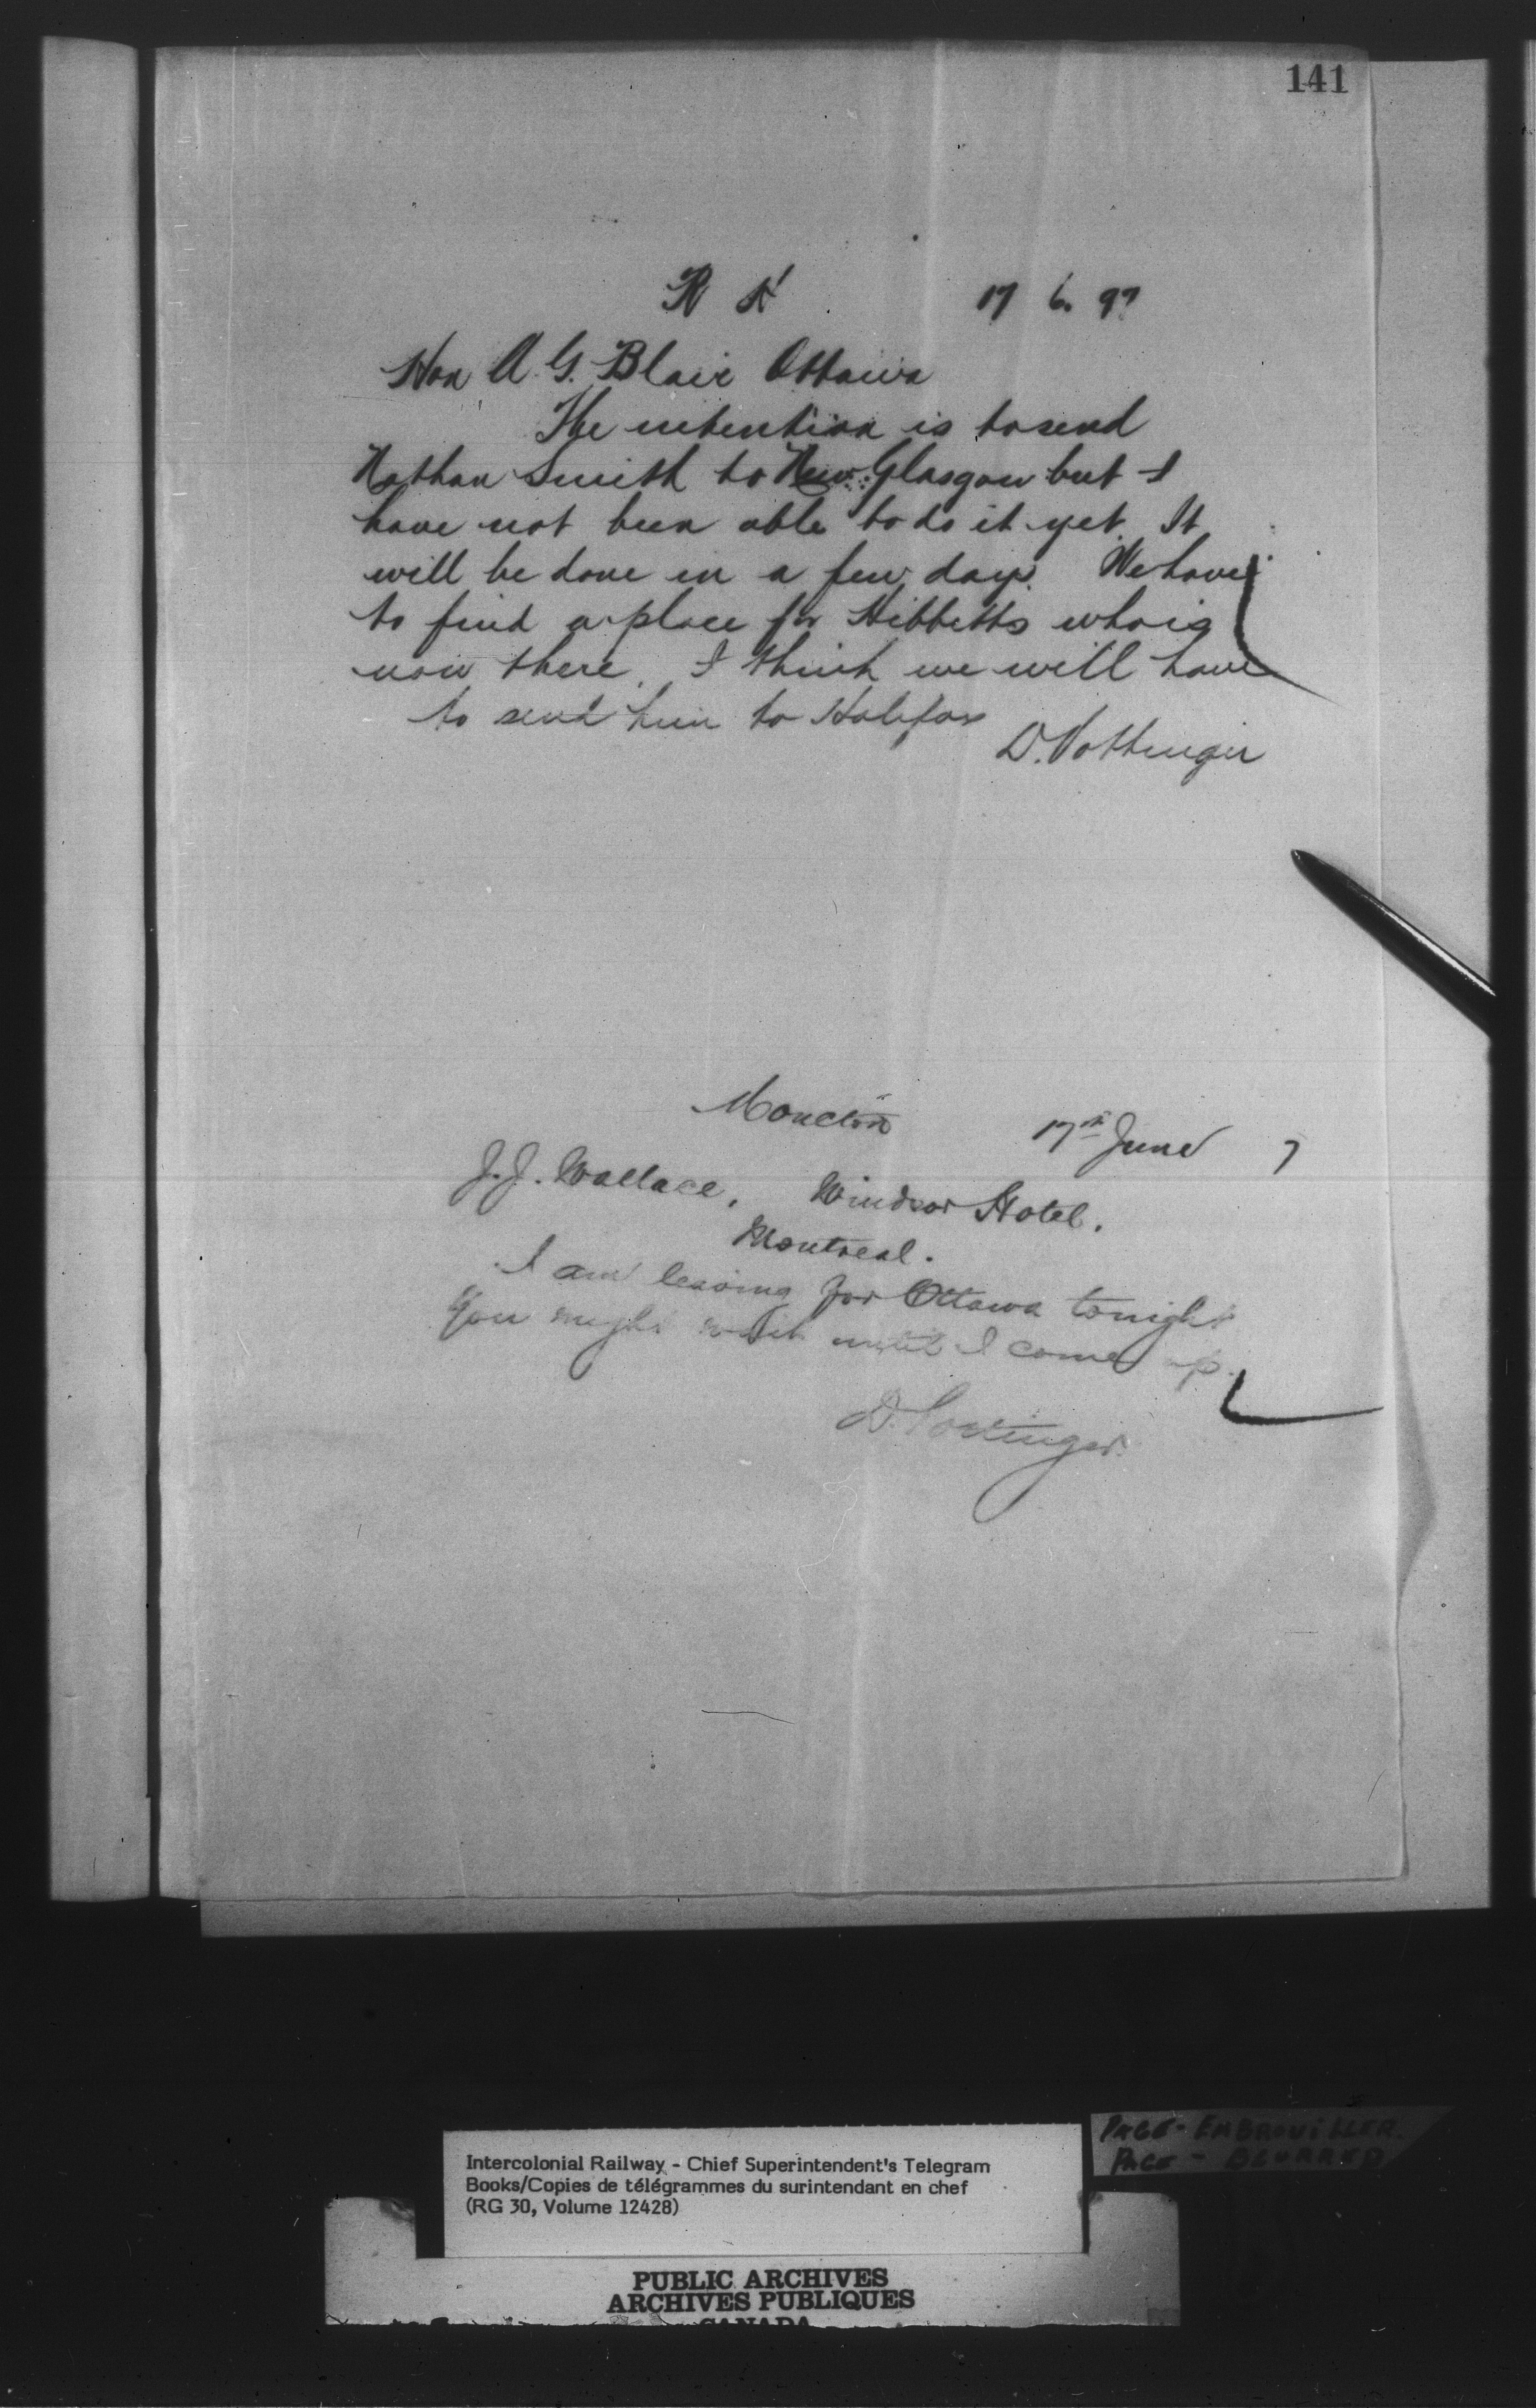 141
17 6. 97
Hon A. G. Blair Ottawa
The intention is to send
Nathan Smith to New Glasgow but I
have not been able to do it yet. It
will be done in a few days. We have
to find a place for Hibbetts who is
now there. I think we will have
to send him to Halifax
D. Pottinger
Moncton 17th June 7
J. J. Wallace, Windsor Hotel.
Montreal.
I am leaving for Ottawa tonight
You might wait until I come up.
D. Pottinger.
PAGE - EMBROUILLER.
PAGE - BLURRED
Intercolonial Railway - Chief Superintendent's Telegram
Books/Copies de télégrammes du surintendant en chef
(RG 30, Volume 12428)
PUBLIC ARCHIVES
ARCHIVES PUBLIQUES
CANADA